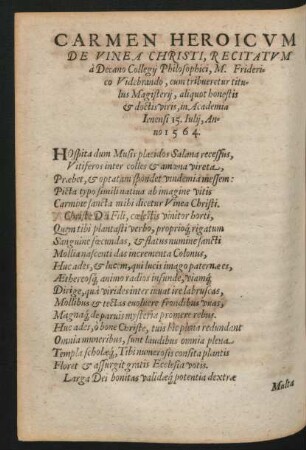 CARMEN HEROICVM
DE VINEA CHRISTI, RECITATVM
à Decano Collegij Philosophici, M. Friderico
Vidебrando, cum tribueretur titulus
Magisterij, aliquot honestis
& doctis viris, in Academia
Ienensi 15. Iulij, Anno
1564.
HOspita dum Musis placidos Salana recessus,
Vitiferos inter colles & amœna vireta,
Præbet, & optatam spondet vindemia messem:
Picta typo simili natiua ab imagine vitis
Carmine sancta mihi dicetur Vinea Christi.
Christe Dei Fili, cœlestis vinitor horti,
Quem tibi plantasti verbo, proprioq́; rigatum
Sanguine fœcundas, & flatus numine sancti
Mollia nascenti das incrementa Colonus,
Huc ades, & lucem, qui lucis imago paternæ es,
Æthereosq́; animo radios infunde, viamq́;
Dirige, quà virides inter iuuat ire labruscas,
Mollibus & tectas euoluere frondibus vuas,
Magnaq́; de paruis mysteria promere rebus.
Huc ades, ô bone Christe, tuis hîc plena redundant
Omnia muneribus, sunt laudibus omnia plena.
Templa scholæq́;, Tibi numerosis consita plantis
Floret & assurgit gratis Ecclesia votis.
Larga Dei bonitas validæq́; potentia dextræ
Multa